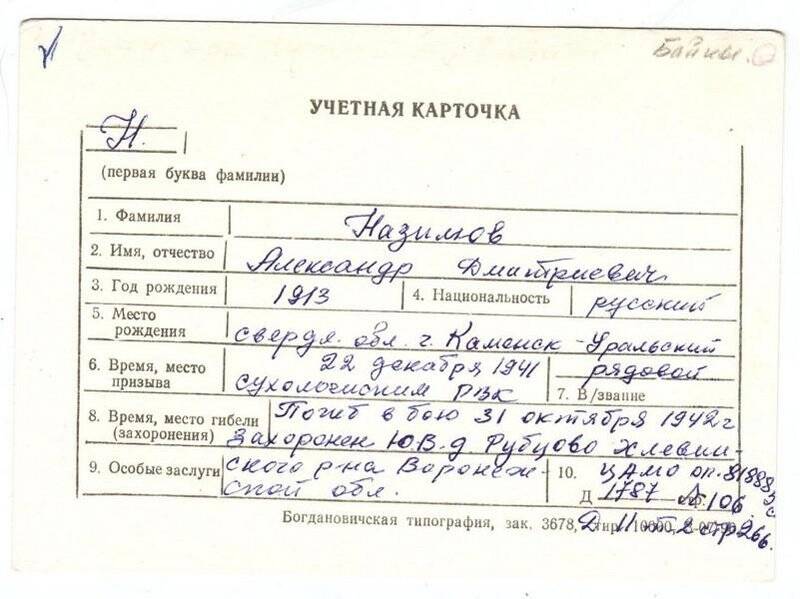 УЧЕТНАЯ КАРТОЧКА
Н.
(первая буква фамилии)
1. Фамилия Назимов
2. Имя, отчество Александр Дмитриевич
3. Год рождения 1913 4. Национальность русский
5. Место рождения свердл. обл. г. Каменск-Уральский
6. Время, место призыва 22 декабря 1941 сухоложским РВК
рядовой
7. В/звание
8. Время, место гибели (захоронения) Погиб в бою 31 октября 1942 г
захоронен Ю.В. д. Рубцово Хлевин-
ского р-на Воронеж-
ской обл.
9. Особые заслуги
10. ЦАМО оп. 818883с
Д 1787 Л 106
Д 11 т 2 стр 266.
Богдановичская типография, зак. 3678, тир. 10000,